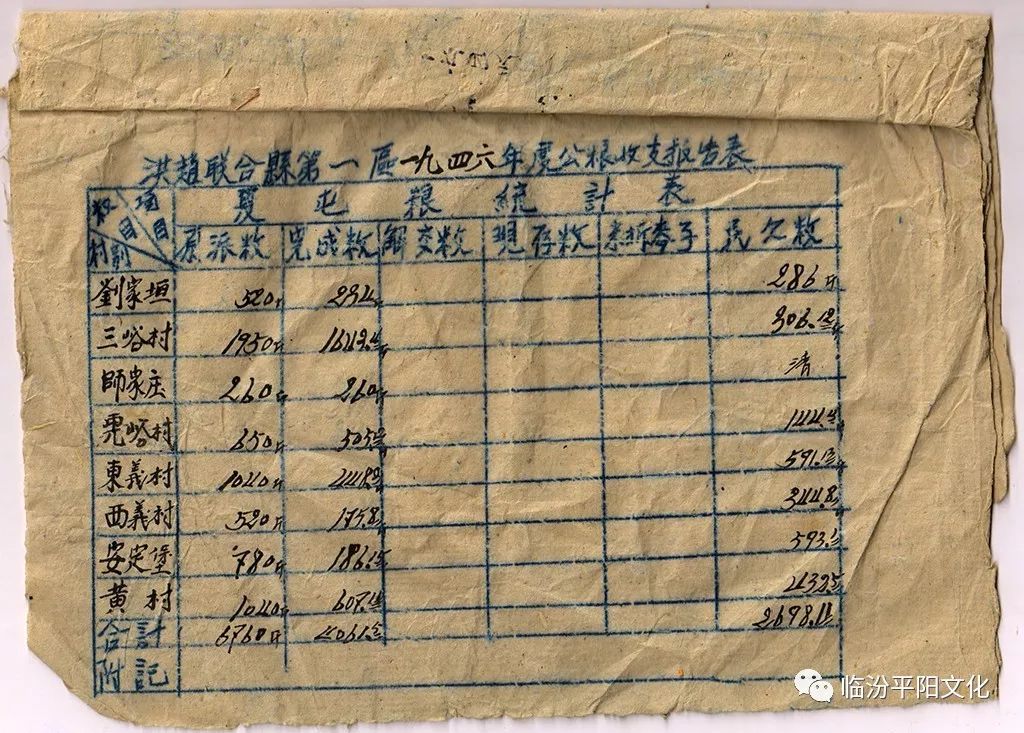 洪趙联合縣第一區一九四六年度公粮收支报告表
夏屯粮統計表
項目 村別
原派数 完成数 解交数 現存数 民欠数
劉家垣 520斤 234 286斤
三峪村 1950斤 306.12
師家庄 260斤 260斤 清
峪村 650斤 505 144
東義村 1040斤 591.
西義村 520斤 175.8 344.8
安定堡 780斤 186. 593.
黄村 1040斤 607.
合計 6760斤 4061 2698.11
附記
临汾平阳文化